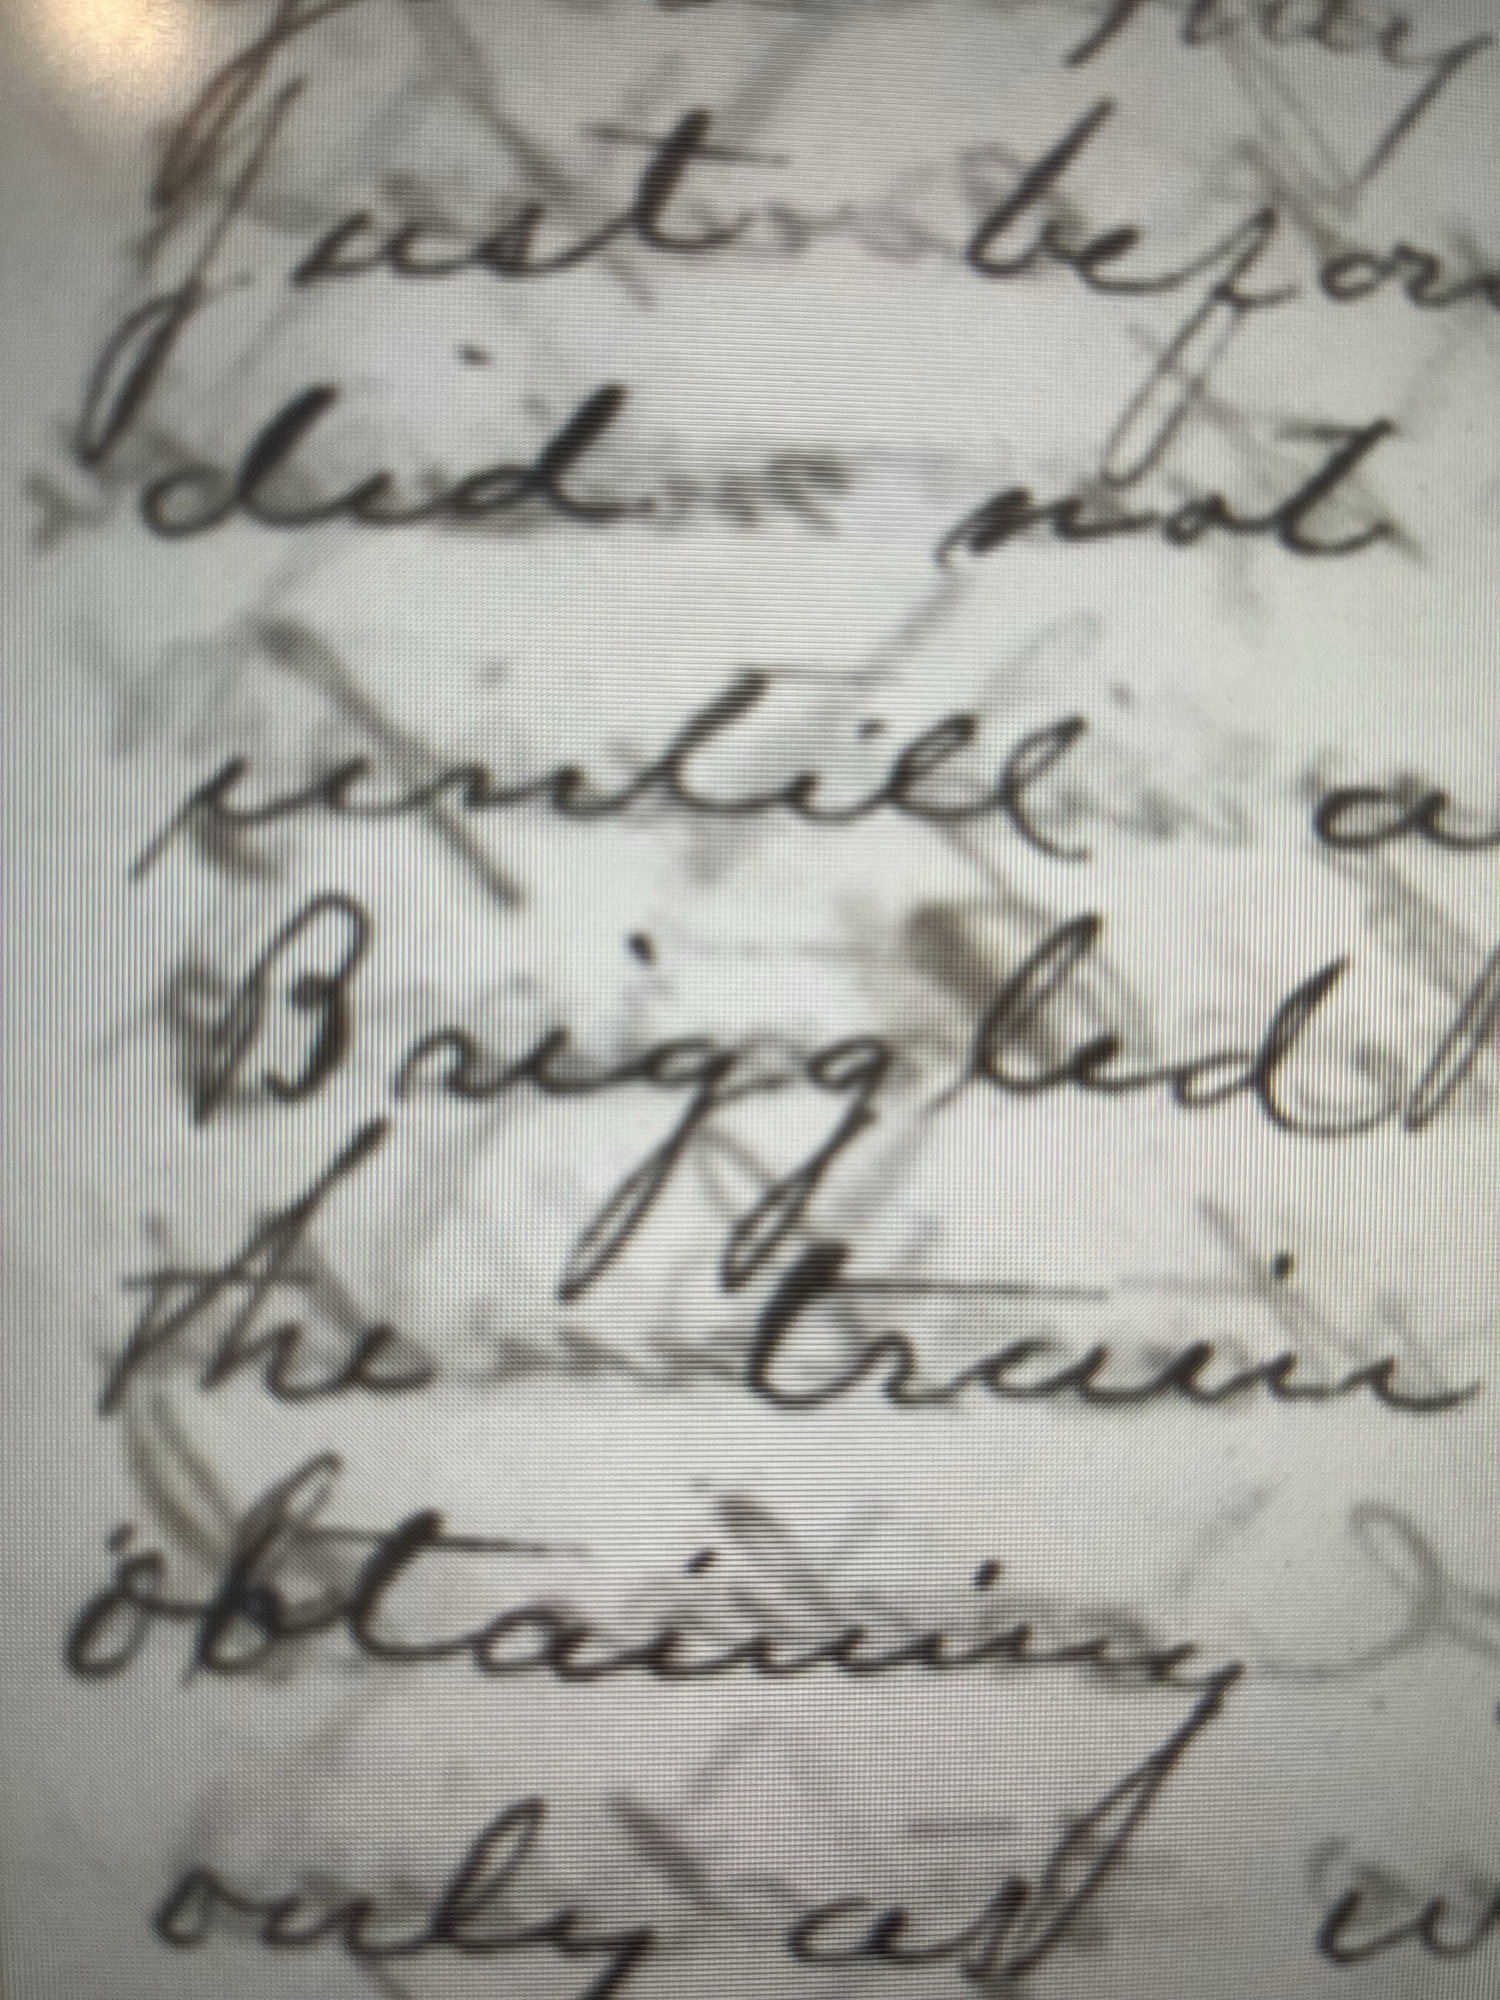 just before
did not
untill a
Briggled
the train
obtaining
only as w